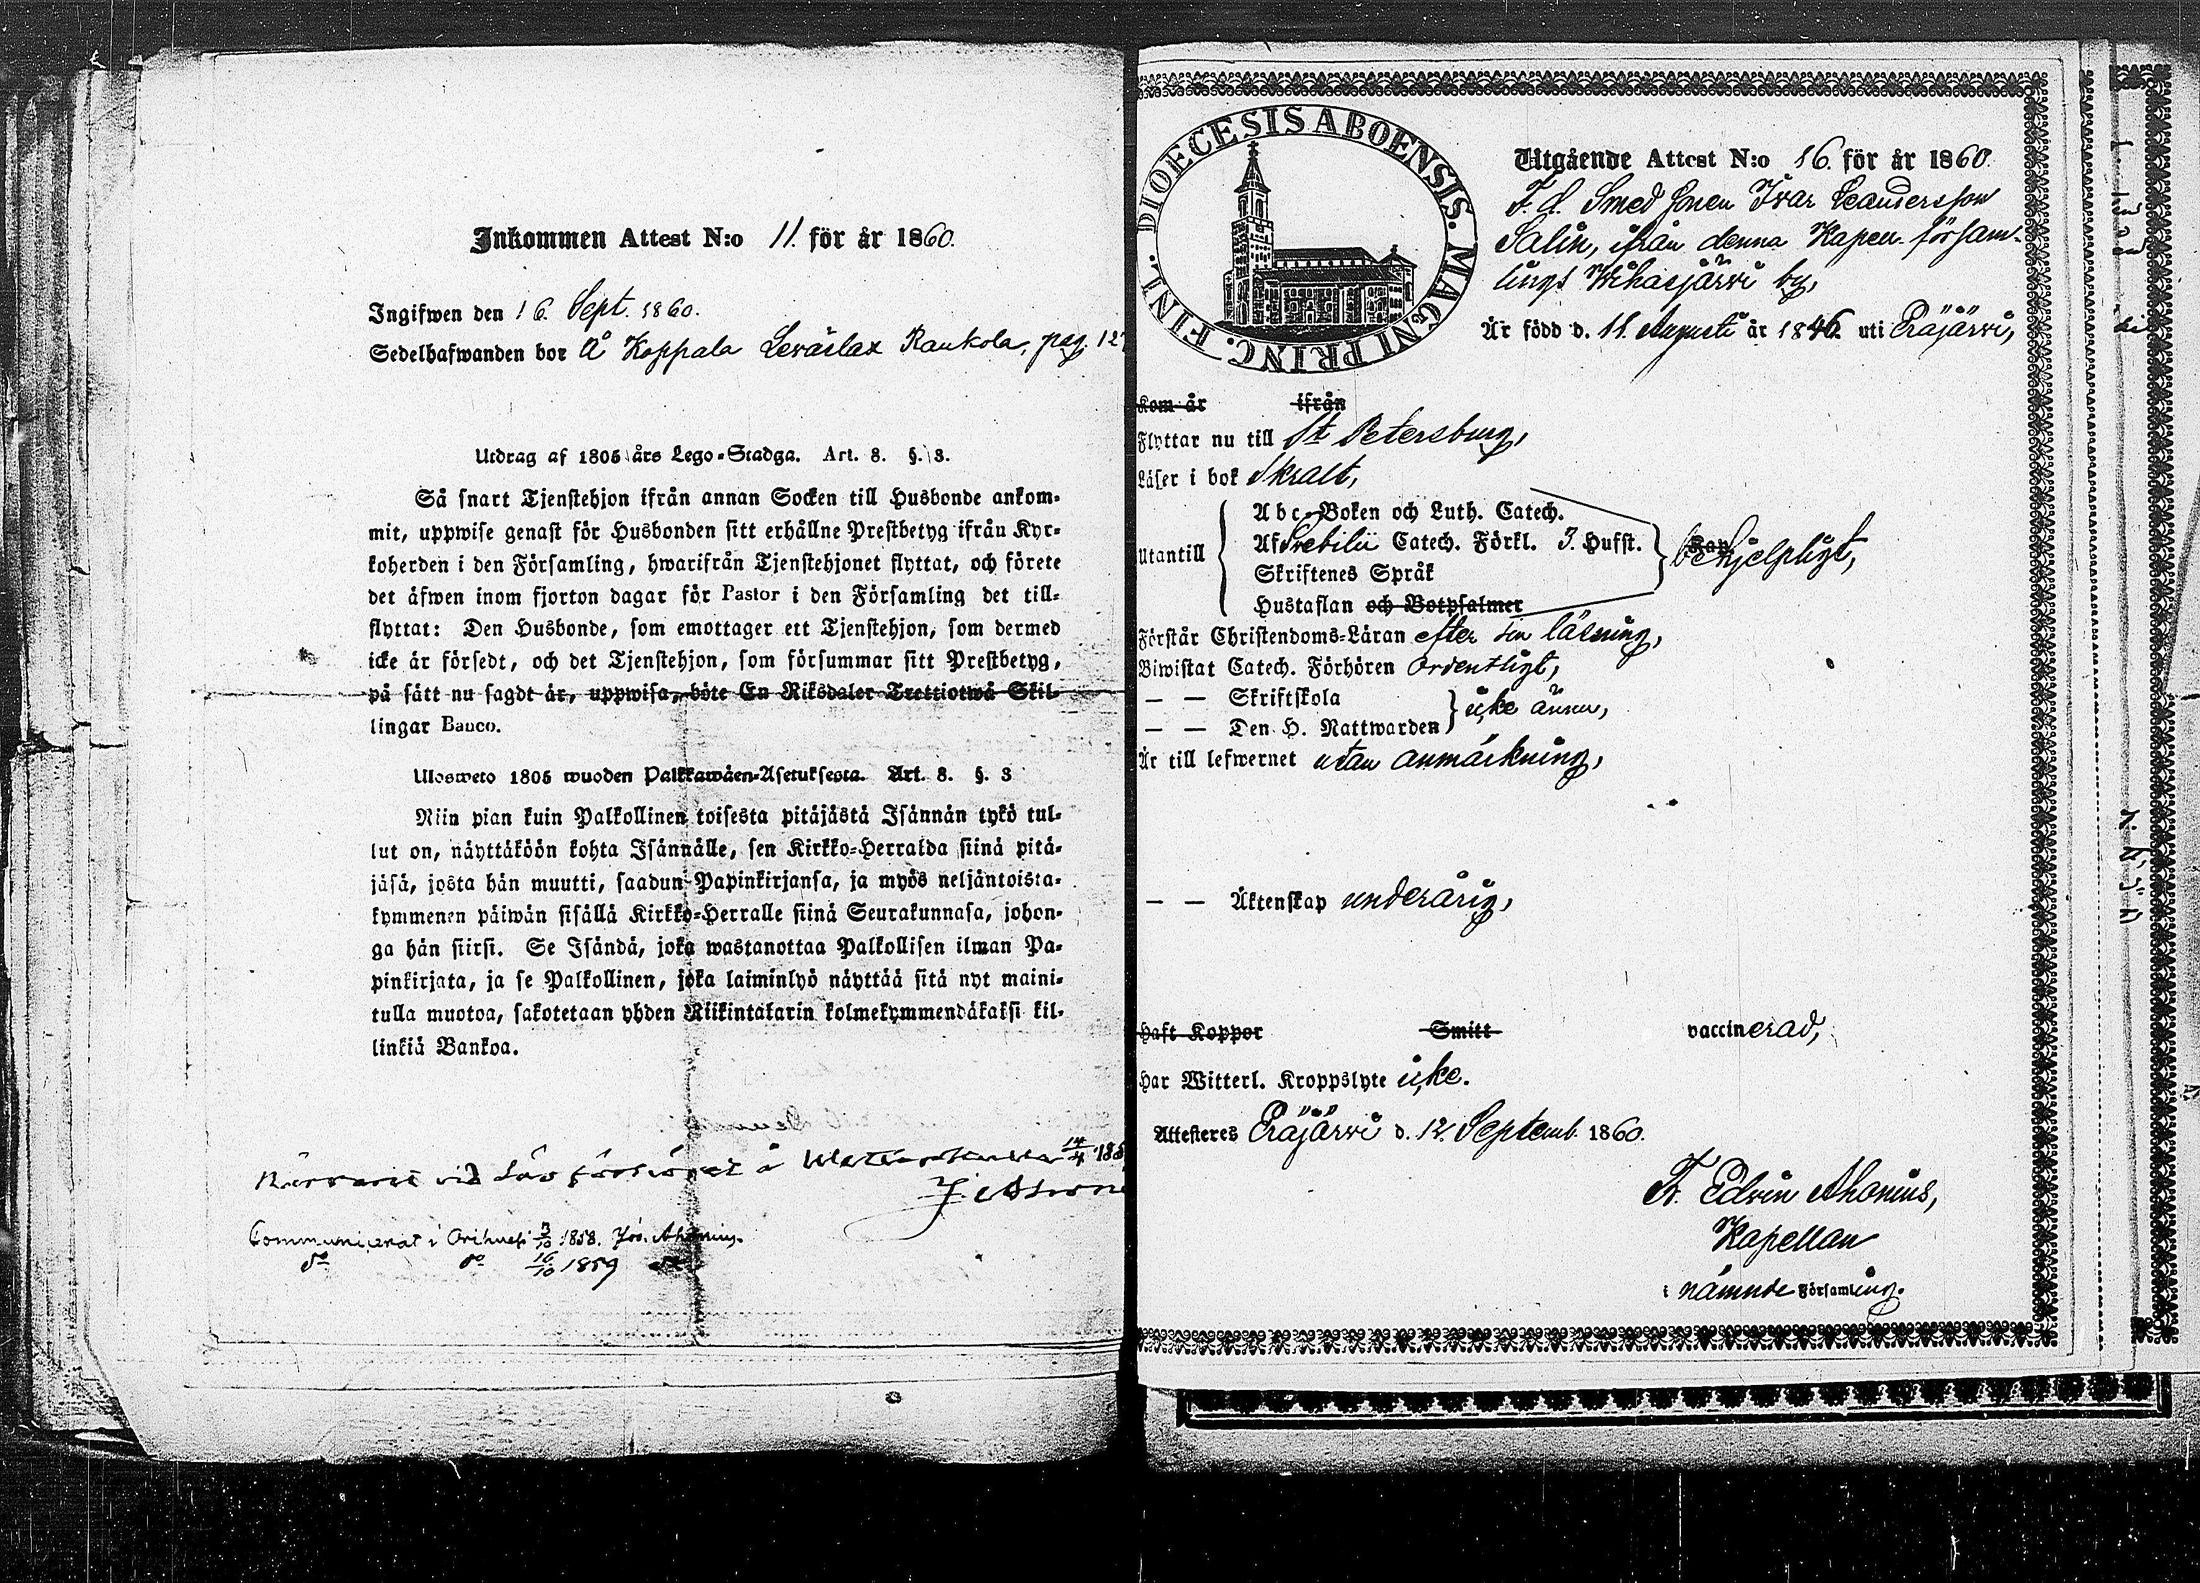 Inkommen Attest N:o 11. för år 1860.
Ingifwen den 16. Sept. 1860.
Sedelhafwanden bor Å Koppala Leväslax Raukola, pag. 127
Utdrag af 1805 års Lego-Stadga. Art. 8. §. 3.
Så snart Tjenstehjon ifrån annan Socken till Husbonde ankom-
mit, uppwise genast för Husbonden sitt erhållne Prestbetyg ifrån Kyr-
koherden i den Församling, hwarifrån Tjenstehjonet flyttat, och förete
det äfwen inom fjorton dagar för Pastor i den Församling det till-
flyttat: Den Husbonde, som emottager ett Tjenstehjon, som dermed
icke är försedt, och det Tjenstehjon, som försummar sitt Prestbetyg,
på sätt nu sagdt är, uppwisa, böte En Riksdaler Trettiotwå Skil-
lingar Banco.
Ulosweto 1805 wuoden Palkkawäen-Asetuksesta. Art. 8. §. 3
Niin pian kuin Palkollinen toisesta pitäjästä Isännän tykö tul-
lut on, näyttäköön kohta Isännälle, sen Kirkko-Herralda siinä pitä-
jäsä, josta hän muutti, saadun Papinkirjansa, ja myös neljäntoista-
kymmenen päiwän sisällä Kirkko-Herralle siinä Seurakunnasa, johon-
ga hän siirsi. Se Isändä, joka wastanottaa Palkollisen ilman Pa-
pinkirjata, ja se Palkollinen, joka laiminlyö näyttää sitä nyt maini-
tulla muotoa, sakotetaan yhden Riikintalarin kolmekymmendäkaksi kil-
linkiä Bankoa.
Närvarit vid Läsförhöret å 14/4 185
Communicerat i Orihvesi 3/10 1858. Joh. Ahonius.
do do 16/10 1859
DIOECESIS ABOENSIS. MAGNI PRINC. FINL.
Utgående Attest N:o 16. för år 1860.
F. d. Smed Sonen Ivar Leandersson
Salin, ifrån denna Kapell-försam-
lings Wihasjärvi by,
Är född d. 11. Augusti år 1846. uti Eräjärvi,
Kom år ifrån
Flyttar nu till St Petersburg,
Läser i bok Skralt,
Utantill
Abc-Boken och Luth. Catech.
Af Svebilii Catech. Förkl. 3. Hufst.
Skriftenes Språk
Hustaflan och Botpsalmer
behjelpligt,
Förstår Christendoms-Läran efter sin läsning,
Biwistat Catech. Förhören ordentligt,
— — Skriftskola
— — Den H. Nattwarden
icke ännu,
Är till lefwernet utan anmärkning,
— — Äktenskap underårig,
Haft Koppor Smitt vaccinerad,
Har Witterl. Kroppslyte icke.
Attesteres Eräjärvi d. 12. Septemb. 1860.
Fr. Edvin Ahonius,
Kapellan
i nämnde Församling.